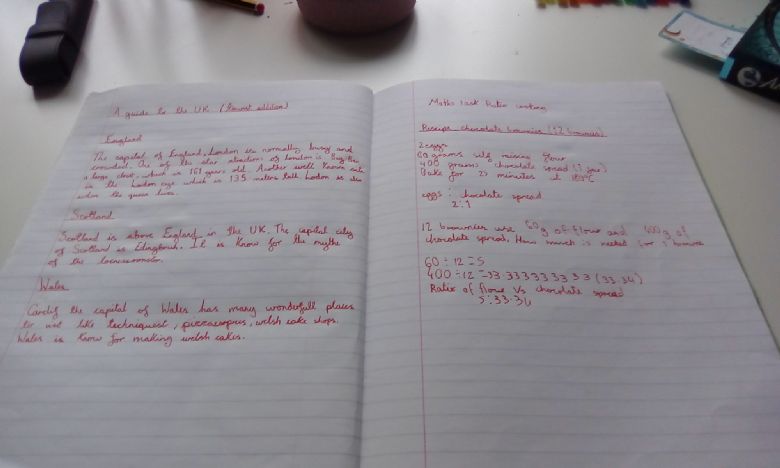 A guide to the UK (Newest addition)
England
The capital of England, London is normally busy and
crowded. One of the star atractions of London is Big Ben
a large clock, which is 161 years old. Another well known
is the London eye which is 135 meters tall. London is also
where the queen lives.
Scotland
Scotland is above England in the UK. The capital city
of Scotland is Edingbrugh. It is Know for the mythe
of the locknessmonster.
Wales
Cardif the capital of Wales has many wonderfull places
to visit like techniquest, pizzaexpress, welsh cake shops.
Wales is Know for making welsh cakes.
Maths task Ratio
Receipe chocolate brownies (12 brownies)
2 eggs
60 grams self raising flour
400 grams chocolate spread (1 jar)
Bake for minutes at
eggs : chocolate spread
2:1
12 brownies use 60g of flour and 400g of
chocolate spread. How much is needed for 1 brownie
60 ÷ 12 = 5
400 ÷ 12 = 33.33333333 (33.34)
Ratio of flour Vs chocolate spread
5:33.34